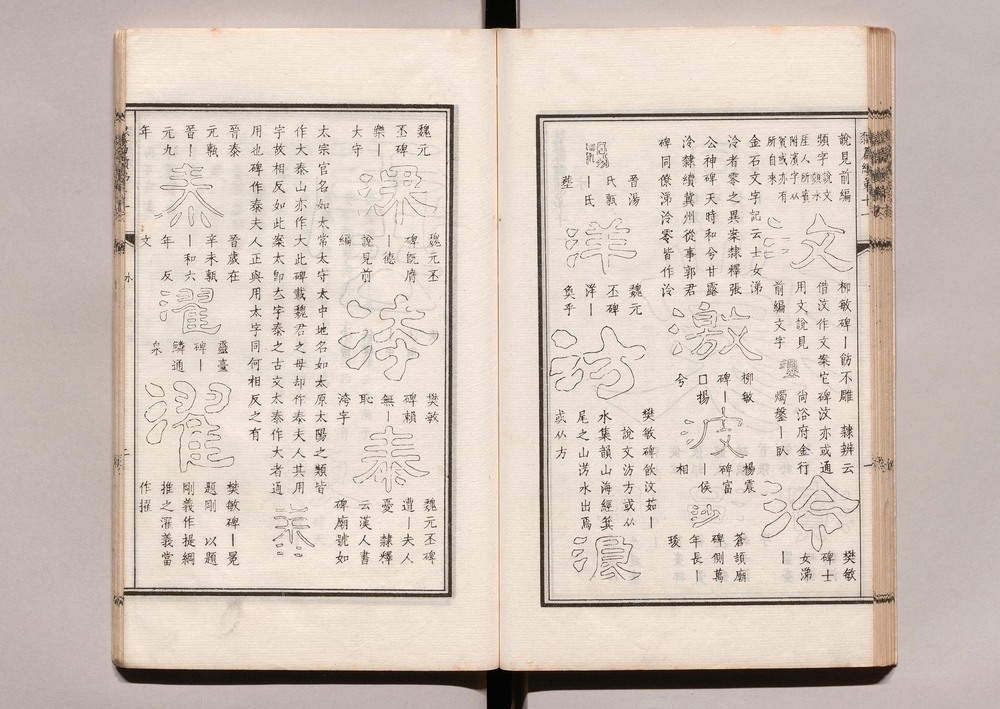 說見前編
文
柳敏碑ー飭不雕
隸辨云
頻字說文
借汶作文案它
碑汶亦或通
用文說見
前編文字
尚浴府金行
燭鏧ー臥
泠
樊敏
碑士
女涕
ー
金石文字記云士女涕
泠者零之異案隸釋張
公神碑天時和兮甘露
泠隸續冀州從事郭君
碑同僚涕泠零皆作泠
激
柳敏
碑ー
口楊
兮
波
楊震
碑富
ー侯
相
沙
蒼頡廟
碑側萬
年長ー
瑗
晉湯
氏甎
ー氏
墼
洋
魏元
丕碑
洋ー
奐乎
汸
樊敏碑飲汶茹ー
說文汸方或从
水集韻山海經箕
尾之山汸水出焉
或从方
魏元
丕碑
樂ー
大守
魏元丕
碑既府
ー德
說見前
編
樊敏
碑賴
無ー
恥
洿字
泰
魏元丕碑
遭ー夫人
憂 隸釋
云漢人書
碑廟號如
太宗官名如太常太守太中地名如太原太陽之類皆
作大泰山亦作大此碑載魏君之母却作泰夫人其用
字故相反如此案太卽夳字泰之古文太泰作大者通
用也碑作泰夫人正與用太字同何相反之有
泰
晉泰
元甎
晉ー
元九
年
泰
晉歲在
辛未甎
ー和六
年 反
文
濯
靈臺
碑ー
鱗通
泉
濯
樊敏碑ー冕
題剛 以題
剛義作提綱
推之濯義當
作擢